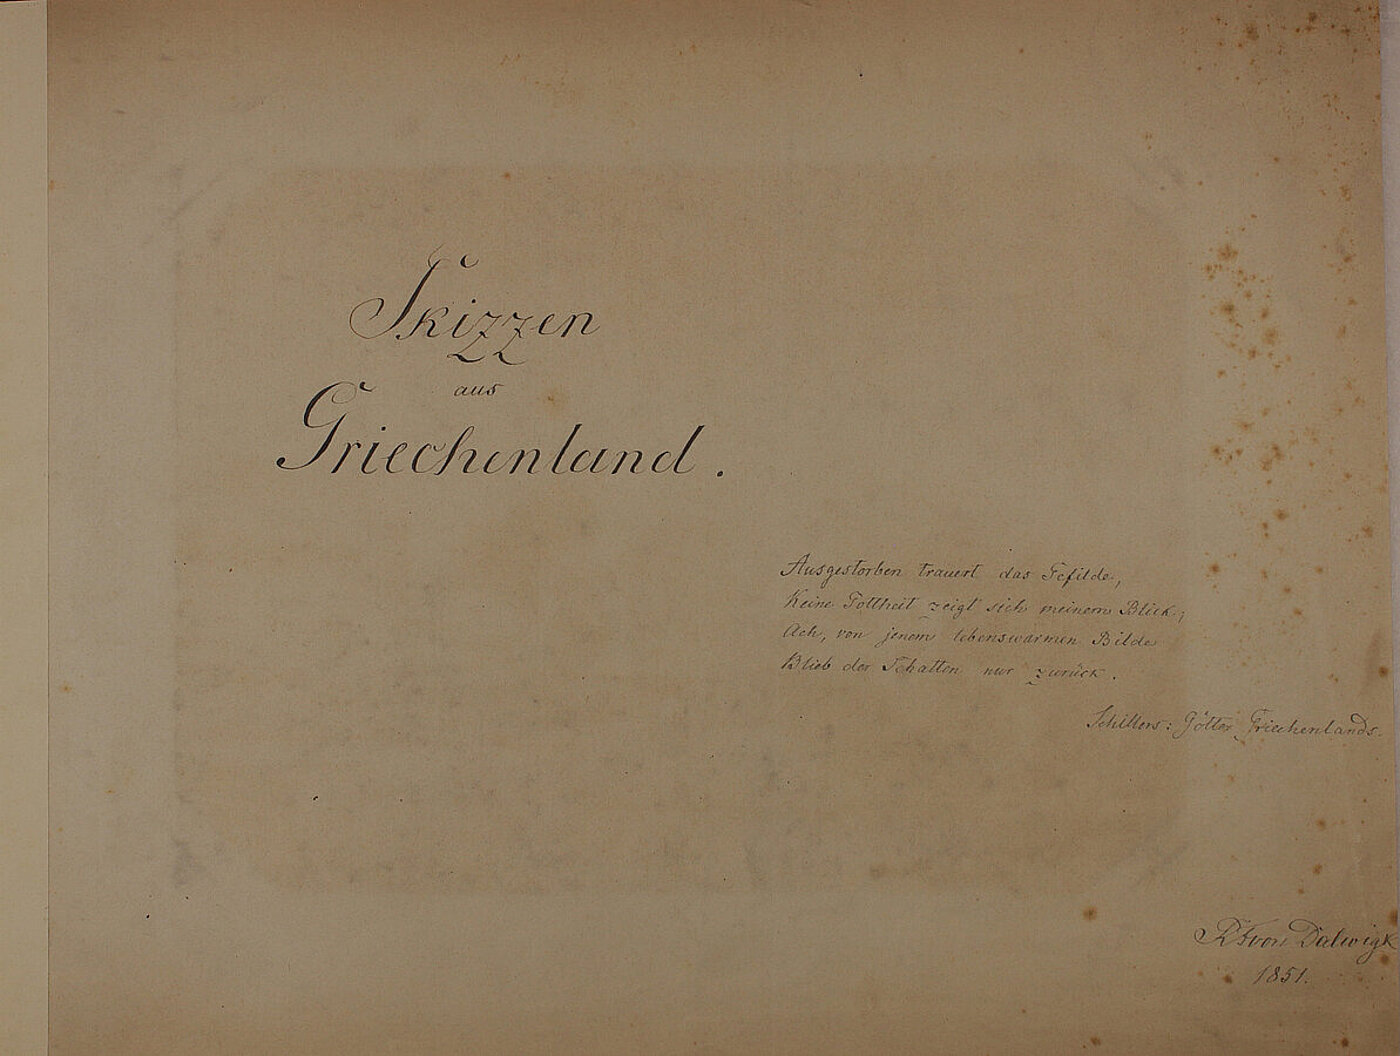 Skizzen
aus
Griechenland.
Ausgestorben trauert das Gefilde,
Keine Gottheit zeigt sich meinem Blick;
Ach, von jenem lebenswarmen Bilde
Blieb der Schatten nur zurück.
Schillers: Götter Griechenlands.
von Dalwigk
1851.